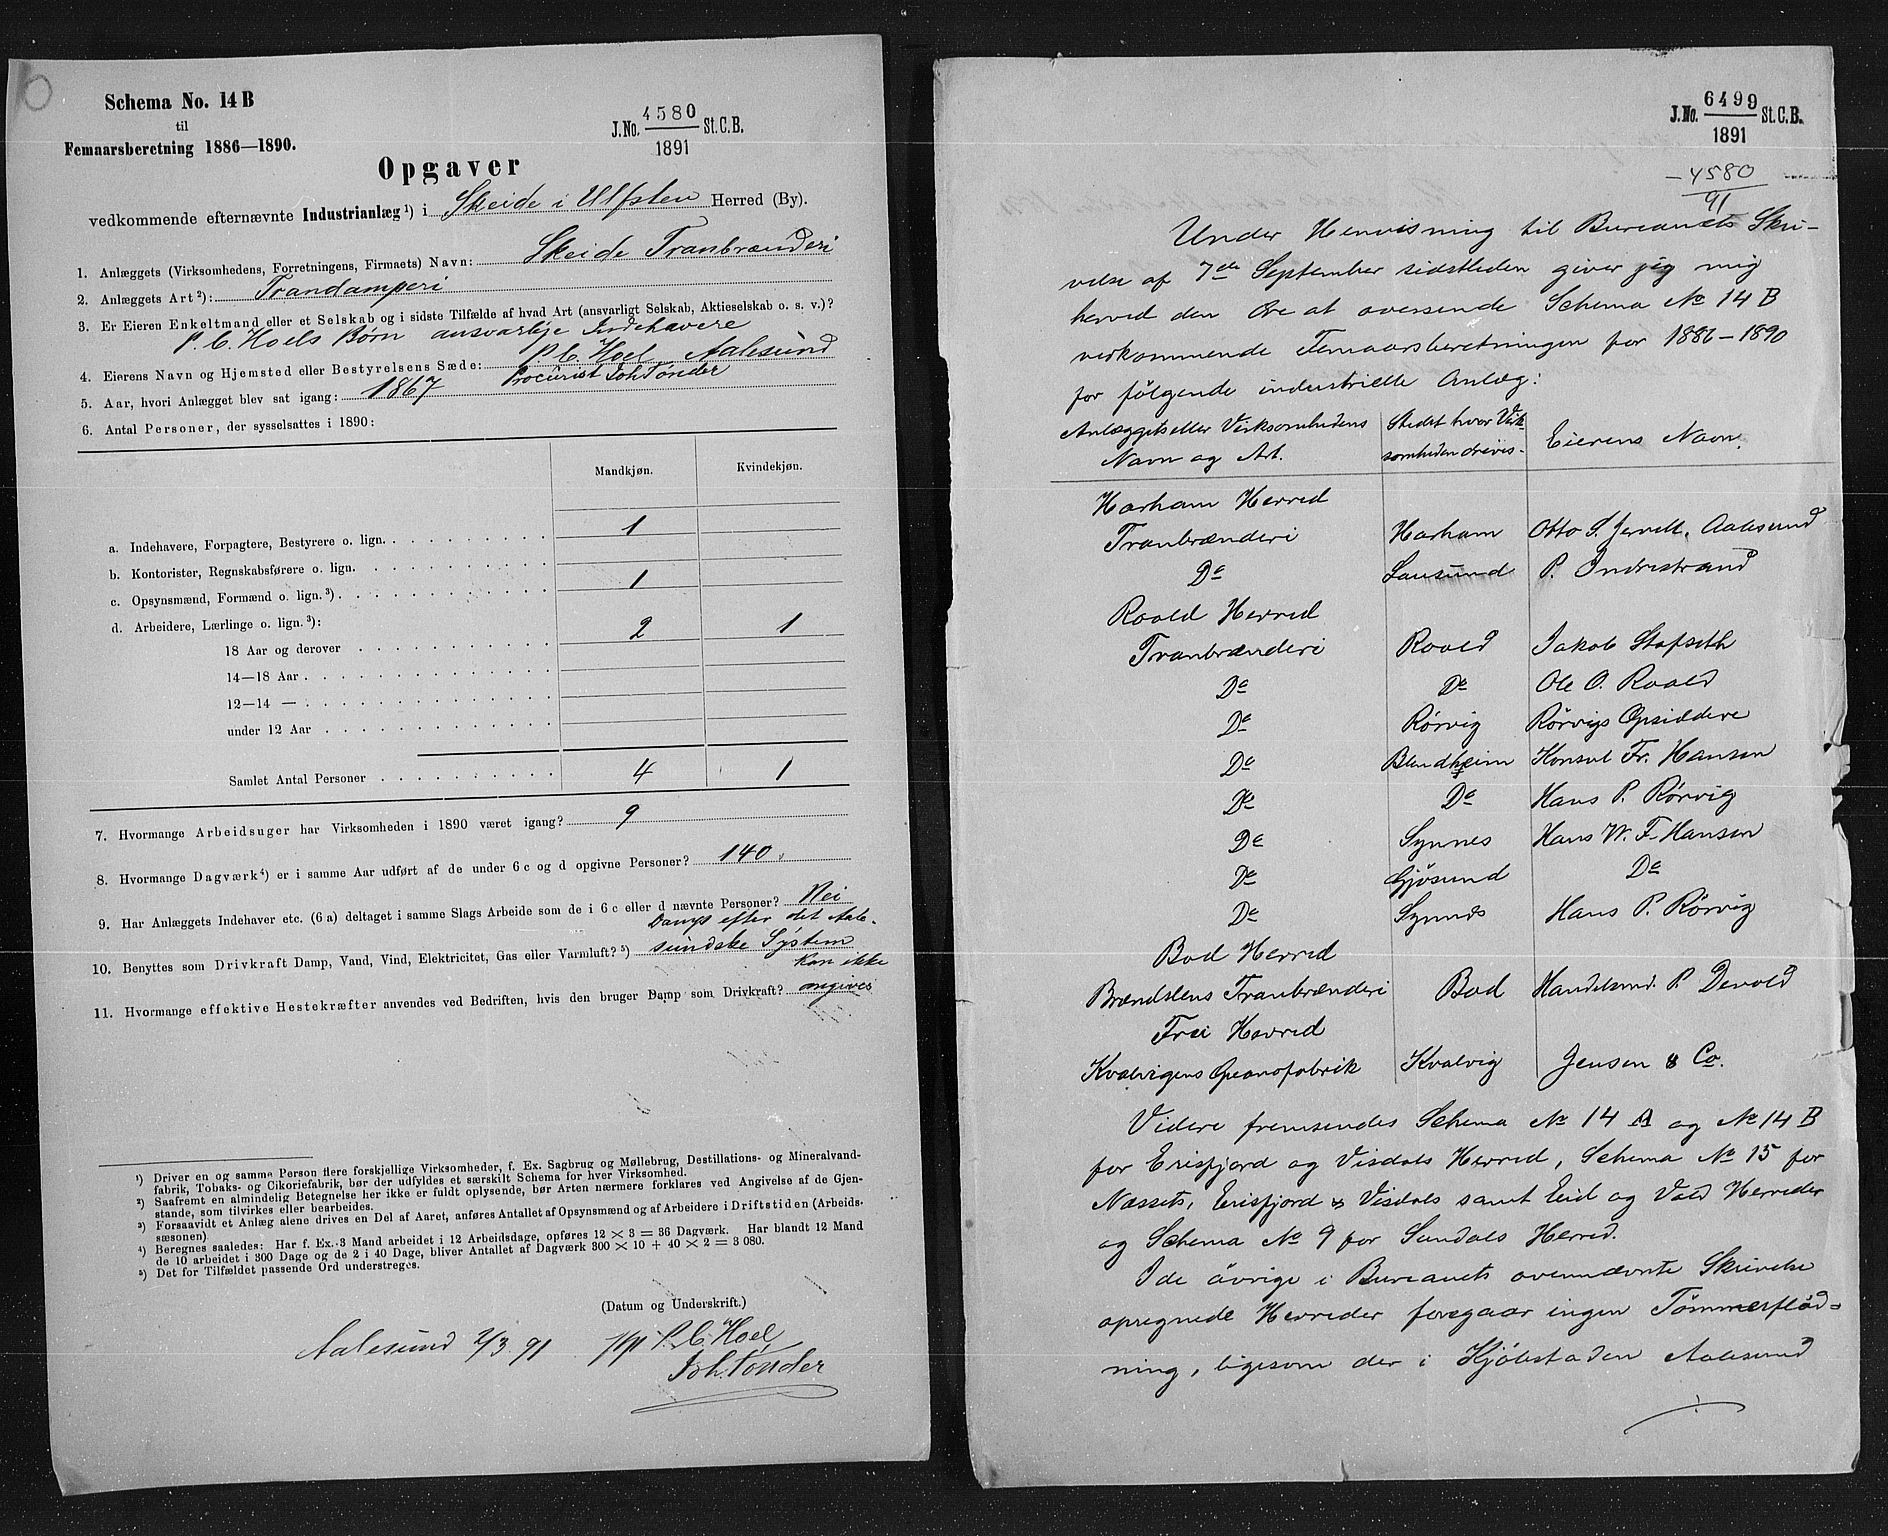 Schema No. 14 B
til
Femaarsberetning 1886—1890.
J.No. 4580 St. C. B.
1891
Opgaver
vedkommende efternævnte Industrianlæg ¹) i Skeide i Ulfsten Herred (By).
1. Anlæggets (Virksomhedens, Forretningens, Firmaets) Navn: Skeide Tranbrænderi
2. Anlæggets Art ²): Trandamperi
3. Er Eieren Enkeltmand eller et Selskab og i sidste Tilfælde af hvad Art (ansvarligt Selskab, Aktieselskab o. s. v.)?
P. C. Hoels Børn ansvarlige Indehavere
4. Eierens Navn og Hjemsted eller Bestyrelsens Sæde: P. C. Hoel Aalesund
Procurist Joh. Tønder
5. Aar, hvori Anlægget blev sat igang: 1867
6. Antal Personer, der sysselsattes i 1890:
Mandkjøn. Kvindekjøn.
a. Indehavere, Forpagtere, Bestyrere o. lign. 1
b. Kontorister, Regnskabsførere o. lign.
c. Opsynsmænd, Formænd o. lign. ³) 1
d. Arbeidere, Lærlinge o. lign. ³):
18 Aar og derover 2 1
14—18 Aar
12—14 —
under 12 Aar
Samlet Antal Personer 4 1
7. Hvormange Arbeidsuger har Virksomheden i 1890 været igang? 9
8. Hvormange Dagværk ⁴) er i samme Aar udført af de under 6 c og d opgivne Personer? 140.
9. Har Anlæggets Indehaver etc. (6 a) deltaget i samme Slags Arbeide som de i 6 c eller d nævnte Personer? Nei
Damp efter det Aale-
10. Benyttes som Drivkraft Damp, Vand, Vind, Elektricitet, Gas eller Varmluft? ⁵) sundske System
Kan ikke
11. Hvormange effektive Hestekræfter anvendes ved Bedriften, hvis den bruger Damp som Drivkraft? angives
¹) Driver en og samme Person flere forskjellige Virksomheder, f. Ex. Sagbrug og Møllebrug, Destillations- og Mineralvand-
fabrik, Tobaks- og Cikoriefabrik, bør der udfyldes et særskilt Schema for hver Virksomhed.
²) Saafremt en almindelig Betegnelse her ikke er fuldt oplysende, bør Arten nærmere forklares ved Angivelse af de Gjen-
stande, som tilvirkes eller bearbeides.
³) Forsaavidt et Anlæg alene drives en Del af Aaret, anføres Antallet af Opsynsmænd og af Arbeidere i Driftstiden (Arbeids-
sæsonen)
⁴) Beregnes saaledes: Har f. Ex. 3 Mand arbeidet i 12 Arbeidsdage, opføres 12 × 3 = 36 Dagværk. Har blandt 12 Mand
de 10 arbeidet i 300 Dage og de 2 i 40 Dage, bliver Antallet af Dagværk 300 × 10 + 40 × 2 = 3 080.
⁵) Det for Tilfældet passende Ord understreges.
(Datum og Underskrift.)
Aalesund 2/3 91 ppi P. C. Hoel
Joh. Tønder
J.No. 6499 St. C. B.
1891
- 4580
91
Under Henvisning til Bureauets Skri-
velse af 7de September sidstleden giver jeg mig
herved den Ære at oversende Schema No 14 B
vedkommende Femaarsberetningen for 1886-1890
for følgende industrielle Anlæg:
Anlæggets eller Virksomhedens Stedet hvor Virk- Eierens Navn.
Navn og Art. somheden drives.
Harham Herred
Tranbrænderi Harham Otto S. Jervell, Aalesund
Do P. Indrestrand
Roald Herred
Tranbrænderi Roald Jakob Stafseth
Do Do Ole O. Roald
Do Rørvig Rørvigs Opsiddere
Do Blindheim Konsul Fr. Hansen
Do Do Hans P. Rørvig
Do Synnes Hans W. F. Hansen
Do Gjøsund Do
Do Synnes Hans P. Rørvig
Bod Herred
Brændslens Tranbrænderi Bod Handelsmd. P. Devold
Frei Herred
Kvalvigens Guanofabrik Kvalvig Jensen & Co.
Videre fremsendes Schema No 14 A og No 14 B
for Erisfjord og Visdals Herred, Schema No 15 for
Nessets, Erisfjord & Visdals samt Eid og Vold Herreder
og Schema No 9 for Sundals Herred.
I de øvrige i Bureauets ovennævnte Skrivelse
opregnede Herreder foregaar ingen Tømmerflød-
ning, ligesom der i Kjøbstaden Aalesund